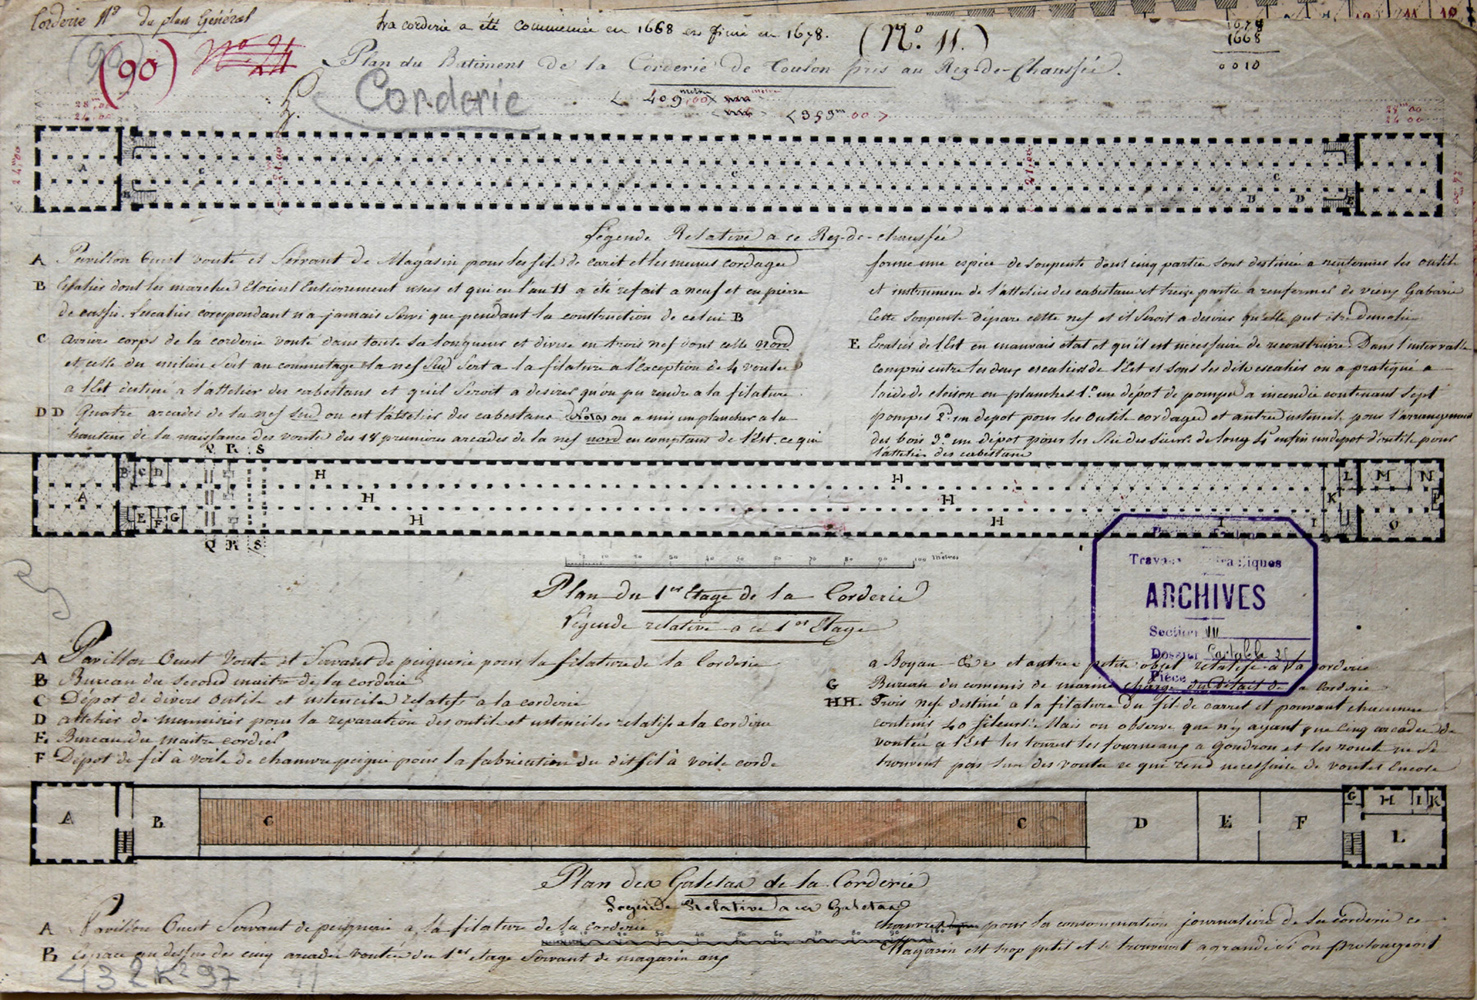 Corderie N° du plan Général
La corderie a été commencée en 1668 et finie en 1678.
(N.° 11.)
1678
1668
0010
(90)
(90)
N° 91
Plan du Batiment de la Corderie de Toulon pris au Rez-de-Chaussée.
Corderie
409
353 m 00
28,00
24 00
24 00
A
B
C
C
C
D
D
E
Légende Relative a ce Rez-de-chaussée
A Pavillon Ouest vouté et Servant de Magasin pour les fils de carét et les menus cordages
B Escalier dont les marches étoient Entierement usées et qui en l'an 11 a été refait a neuf et en pierre
de cassis. L'escalier corespondant n'a jamais Servi que pendant la construction de celui B
C arriere corps de la corderie vouté dans toute sa longueur et divisé en trois nef dont celle Nord
et celle du milieu Soit au commetage la nef Sud Sert a la filature a l'Exception de 4 voutes
a l'Est destiné a l'attelier des cabestans et qu'il Seroit a desirer qu'on put rendre a la filature
DD Quatre arcades de la nef Sud ou est l'attelier des cabestans Nota ou a mis un plancher a la
hauteur de la naissance des voutes des 18 premieres arcades de la nef nord en comptant de l'Est ce qui
forme une espèce de Soupente dont cinq parties sont destinée a renfermer les outils
et instrumens de l'attelier des cabestans et treize partie a renfermer de vieux Gabaris
Cette Soupente dépare cette nef et il Seroit a desirer qu'elle put etre demolie
E Escalier de l'Est en mauvais état et qu'il est necessaire de reconstruire. Dans l'intervalle
compris entre les deux escaliers de l'Est et sous les dits escaliers on a pratiqué a
l'aide de cloison en planches 1.° un dépot de pompes a incendie contenant Sept
pompes 2° un depot pour les outils cordages et autres ustencils pour l'arrangement
des bois 3.° un dépot pour les Scies des Scieurs de long 4.° enfin un depot d'outils pour
l'attelier des cabestans
Q R S
A
B C D
E F G
H
H
H
H
H
H
I
I
K
L
M
N
O
P
Q R S
10 20 30 40 50 60 70 80 90 100 Metres
Plan du 1er Etage de la Corderie
Légende relative a ce 1er Etage
Travaux Hydrauliques
ARCHIVES
Section VII
Dossier Cartable 25
Pièce
A Pavillon Ouest Vouté et Servant de peignerie pour la filature de la Corderie
B Bureau du Second maitre de la corderie
C Dépot de divers Outils et ustencile relatifs a la corderie
D attelier de menuisier pour la reparation des outils et ustenciles relatifs a la corderie
E Bureau du maitre cordier
F Dépot de fil à voile de chanvre peigné pour la fabrication du dit fil à voile corde
a Boyau &c et autres petits objet relatifs a la corderie
G Bureau du commis de marine chargé du détail de la Corderie
HH. Trois nef destiné a la filature du fil de carret et pouvant chacune
contenir 40 fileurs. Mais on observe que n'y ayant que cinq arcades de
voutées a l'Est les touret les fourneaux a goudron et les rouets ne Se
trouvent pas Sur des voutes ce qui rend necessaire de voutes Encore
A
B
C
C
D
E
F
G
H
I
K
L
Plan des Galetas de la Corderie
Legende Relative a ce Galetas
A Pavillon Ouest Servant de peignerie a la filature de la corderie
B Espace au dessus des cinq arcades voutées du 1er etage Servant de magasin aux
chanvres pour la consommation journaliere de la corderie ce
Magasin est trop petit et se trouveroit agrandi si on prolongeoit
432K²97
91